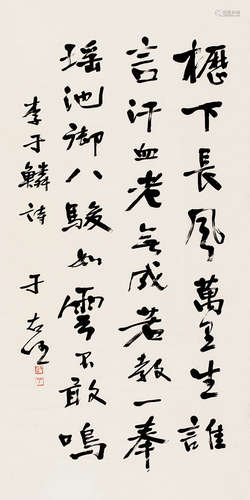 櫪下長風萬里生誰
言汗血老無成若教一奉
瑤池御八駿如雲不敢鳴
李于鱗詩 于右任